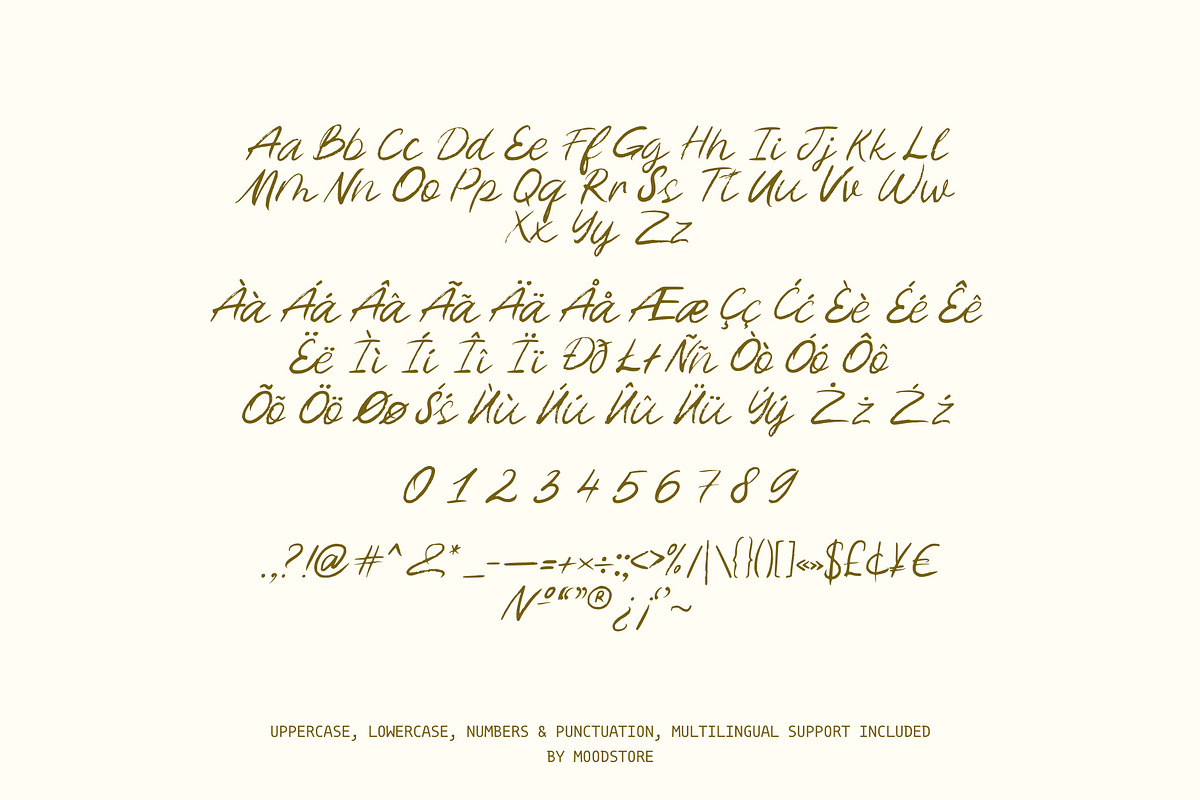 Aa Bb Cc Dd Ee Ff Gg Hh Ii Jj Kk Ll
Mm Nn Oo Pp Qq Rr Ss Tt Uu Vv Ww
Xx Yy Zz
Àà Áá Ââ Ãã Ää Åå Ææ Çç Ćć Èè Éé Êê
Ëë Ìì Íí Îî Ïï Đð Łł Ññ Òò Óó Ôô
Õõ Öö Øø Śś Ùù Úú Ûû Üü Ýý Żż Źź
0 1 2 3 4 5 6 7 8 9
.,?!@#^&*_-—=+×÷:;<>%/|\{}()[]«»$£¢¥€
Nº“”®¿¡‘’~
UPPERCASE, LOWERCASE, NUMBERS & PUNCTUATION, MULTILINGUAL SUPPORT INCLUDED
BY MOODSTORE